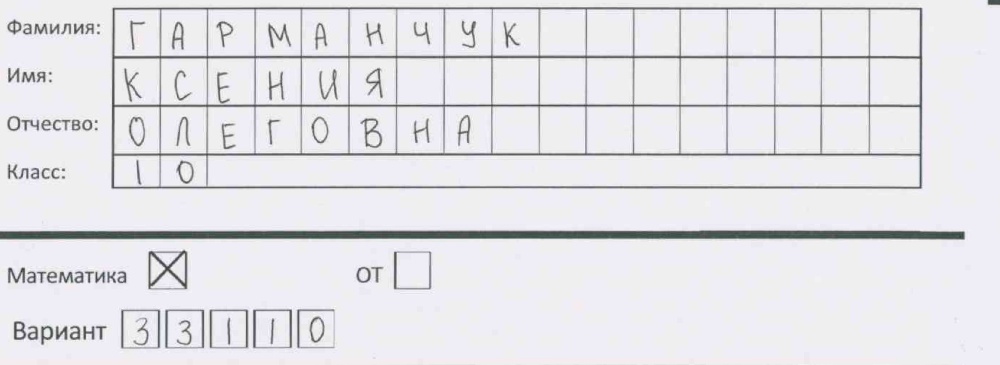 Фамилия: ГАРМАНЧУК
Имя: КСЕНИЯ
Отчество: ОЛЕГОВНА
Класс: 10
Математика ОТ
Вариант 33110